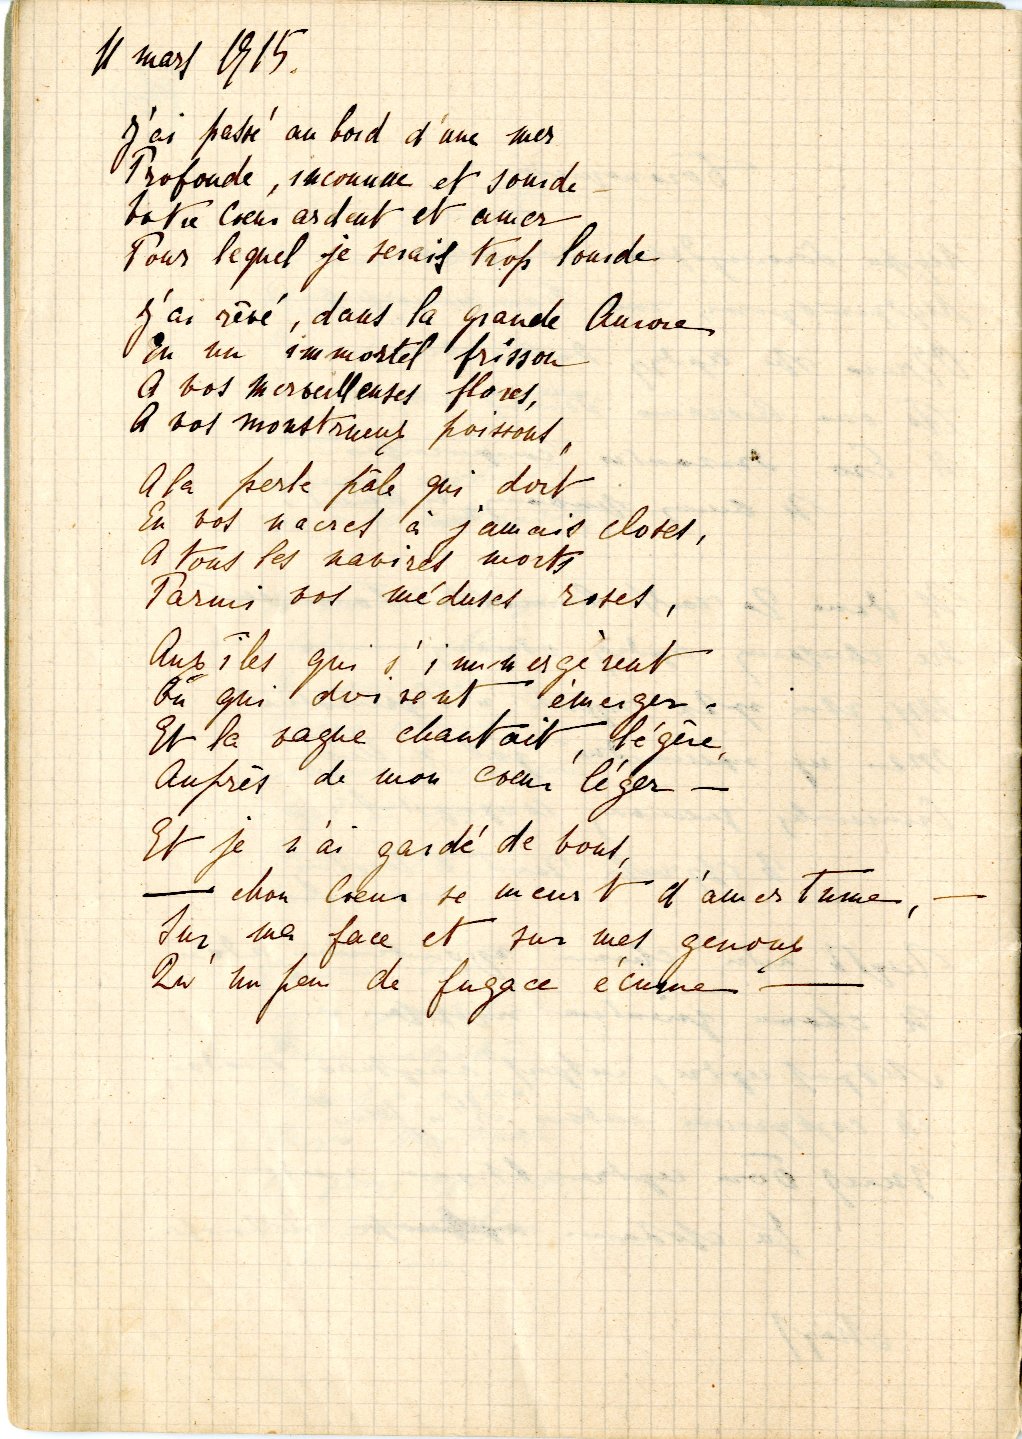 11 mars 1915.
J'ai passé au bord d'une mer
Profonde, inconnue et sourde –
Votre Coeur ardent et amer
Pour lequel je serais trop lourde
J'ai rêvé, dans la grande Aurore
En un immortel frisson
A vos merveilleuses flores,
A vos monstrueux poissons,
A la perle pâle qui dort
En vos nacres à jamais closes,
A tous les navires morts
Parmi vos méduses roses,
Aux îles qui s'immergèrent
Ou qui doivent émerger.
Et la vague chantait, légère,
Auprès de mon coeur léger —
Et je n'ai gardé de vous,
— Mon Coeur se meurt d'amertume, —
Sur ma face et sur mes genoux
Qu'un peu de fugace écume —